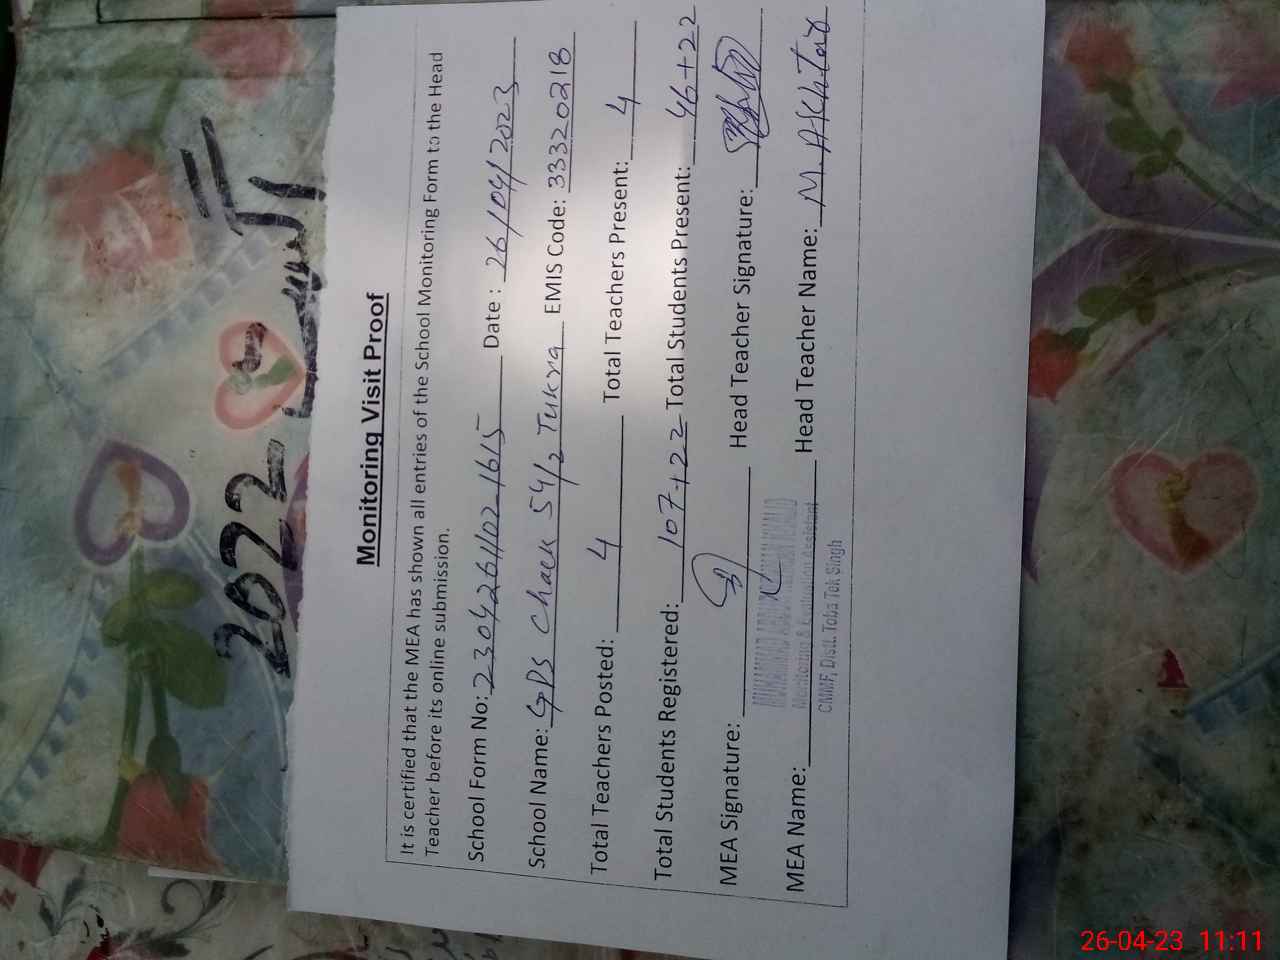 Monitoring Visit Proof
It is certified that the MEA has shown all entries of the School Monitoring Form to the Head
Teacher before its online submission.
School Form No: 2304261102-1615 Date : 26/04/2023
School Name: GPS Chack 54/2 Tukra EMIS Code: 33320218
Total Teachers Posted: 4 Total Teachers Present: 4
Total Students Registered: 107+22 Total Students Present: 46+22
MEA Signature: Head Teacher Signature:
MEA Name: Head Teacher Name: M. AKhtar
Monitoring & Evaluation Assistant
CMMF, Distt. Toba Tek Singh
2022
26-04-23 11:11